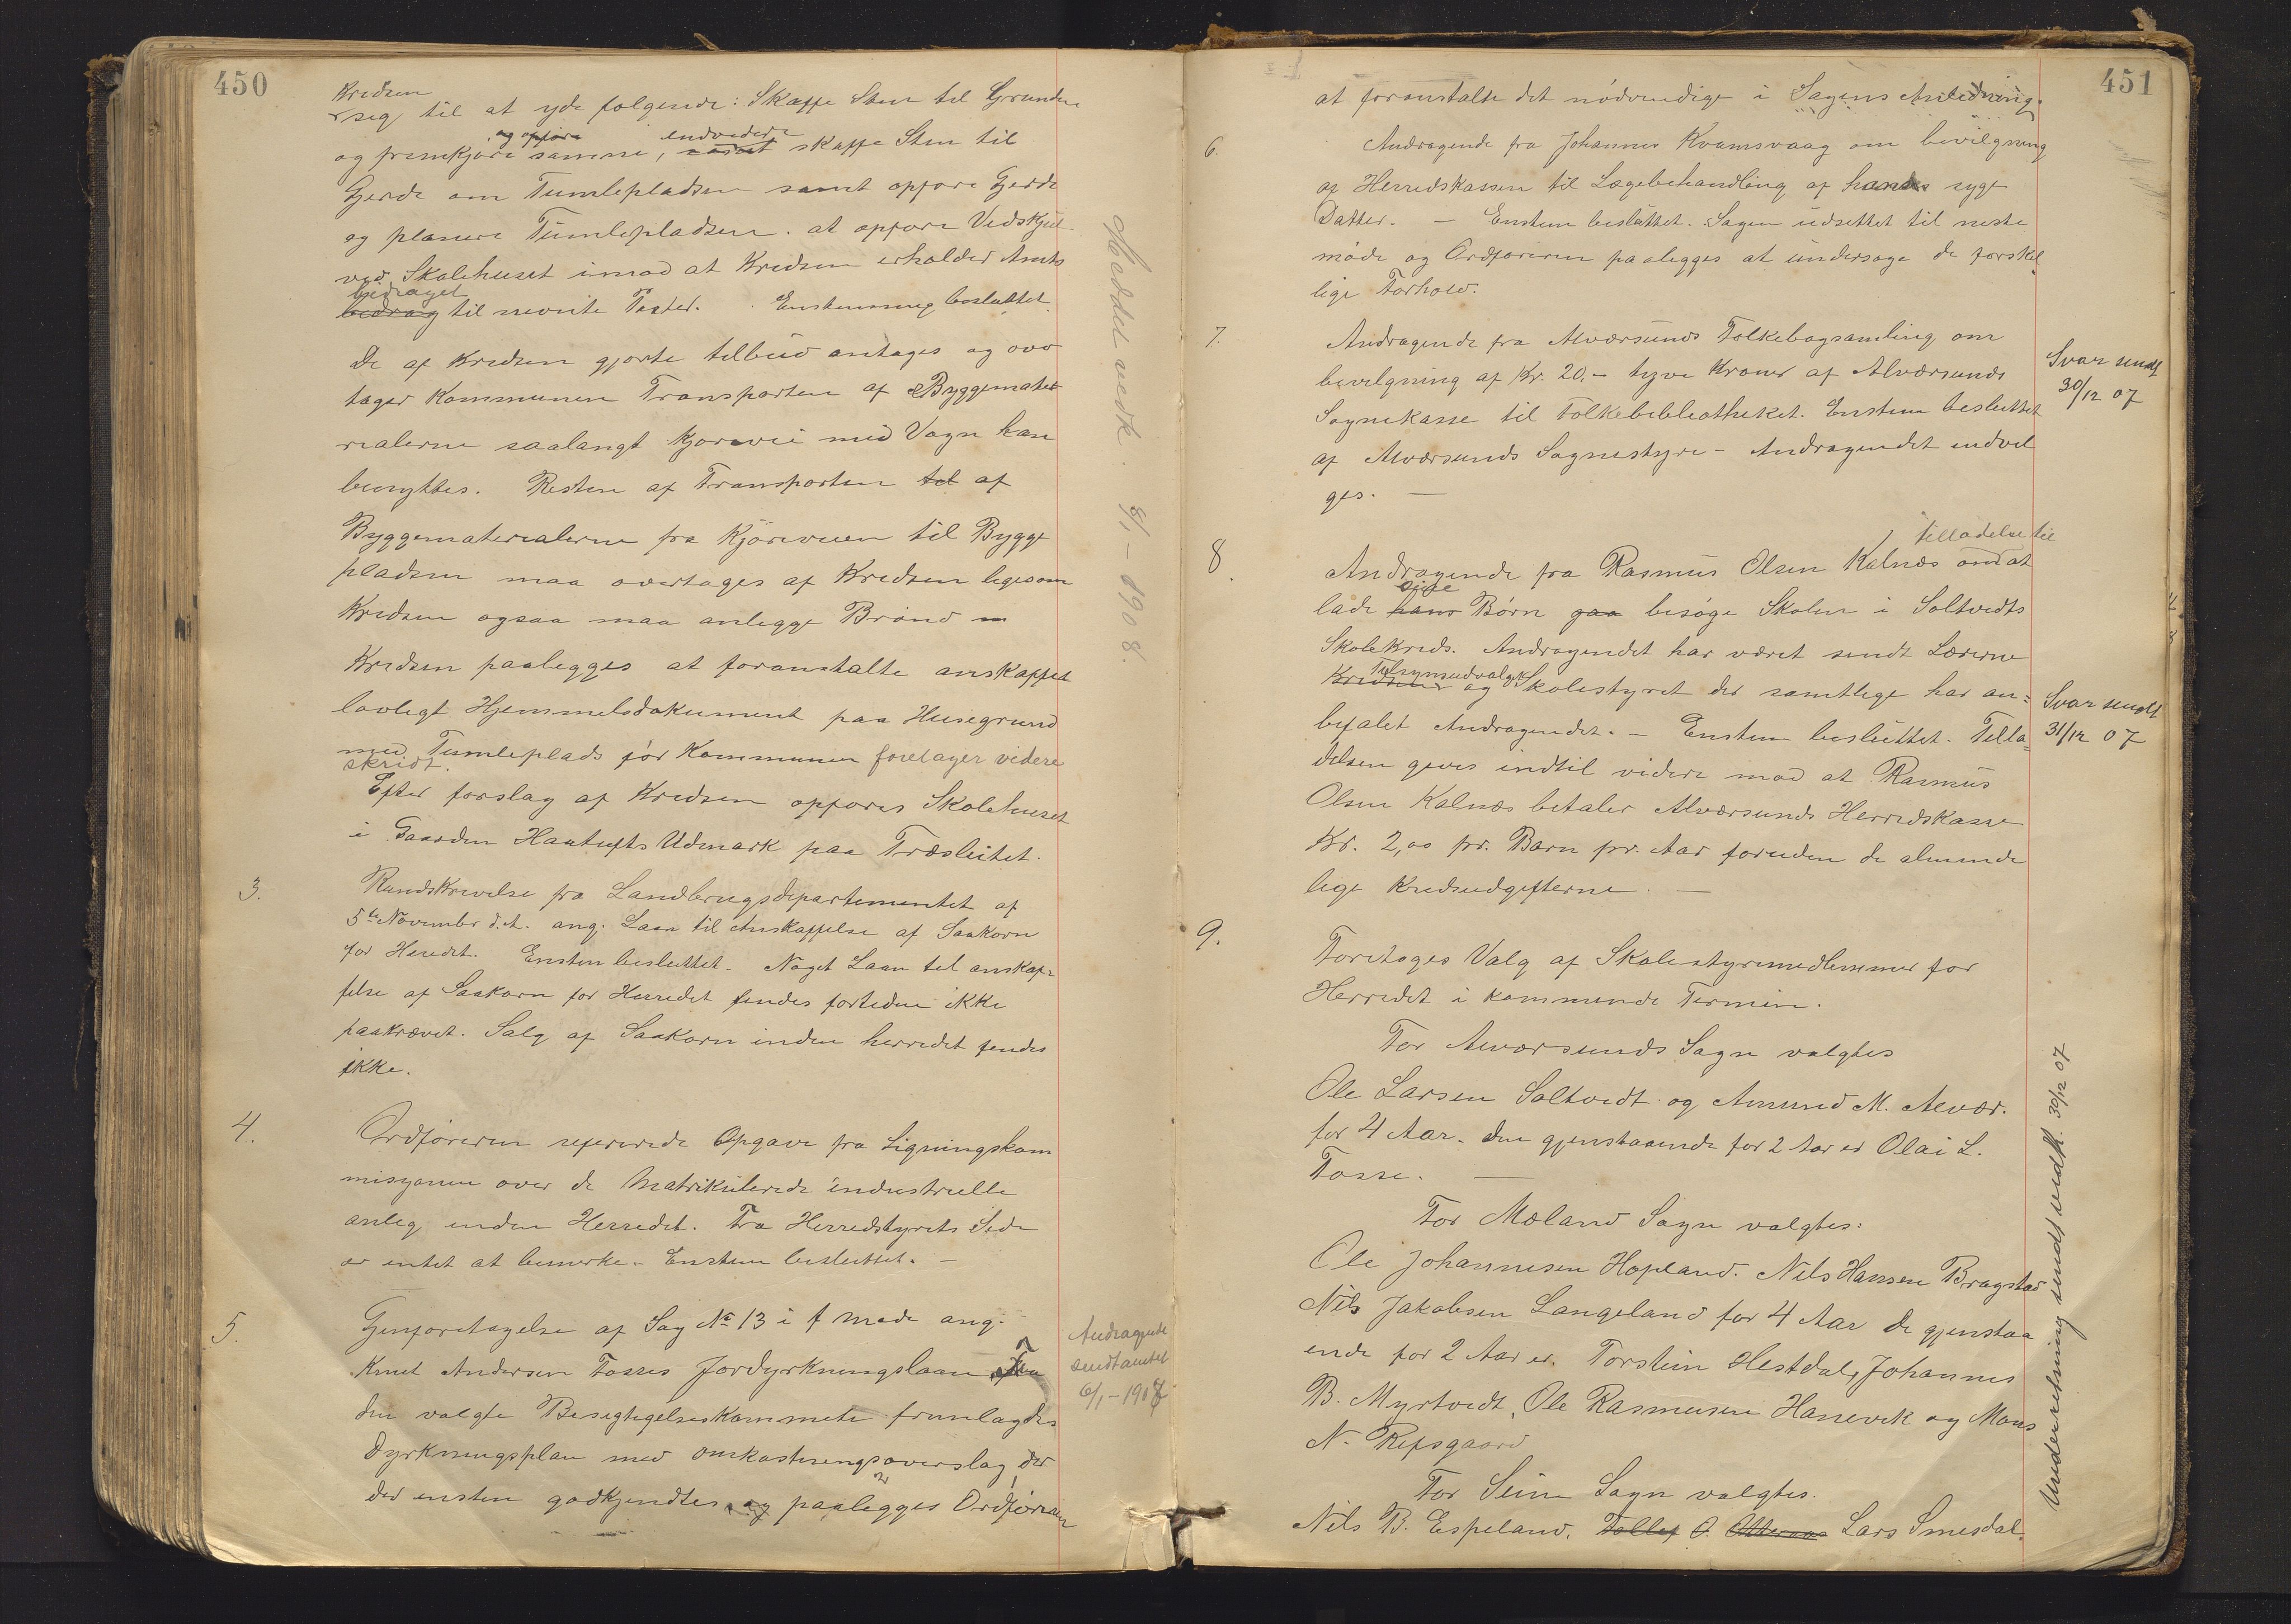 450
Kredsen
seg til at yde følgende: Skaffe Sten til Grunden
og opføre endvidere
og fremkjøre samme, samt skaffe Sten til
Gjerde om Tumlepladsen samt opføre Gjerde
og planere Tumlepladsen. at opføre Vedskjul
ved Skolehuset imod at Kredsen erholder Amts
bidraget
bedrag til nevnte Poster. Enstemmig besluttet.
De af Kredsen gjorte tilbud antages og ovo
tager Kommunen Transporten af Byggemate
rialerne saalangt Kjørevei med Vogn kan
benyttes. Resten af Transporten tel af
Byggematerialerne fra Kjøreveien til Bygge
pladsen maa overtages af Kredsen ligesom
Kredsen ogsaa maa anlegge Brønd
Kredsen paalegges at foranstalte anskaffet
lovligt Hjemmelsdokument paa Husegrund
med Tumleplads før Kommunen foretager videre
skridt.
Efter forslag af Kredsen opføres Skolehuset
i Gaarden Hautufts Udmark paa Træsleitet.
3.
Rundskrivelse fra Landbrugsdepartementet af
5te November d.A. ang. Laan til Anskaffelse af Saakorn
for Heredet. Enstem besluttet. Noget Laan til anskaf-
felse af Saakorn for Herredet findes fortiden ikke
paakrævet. Salg af Saakorn inden herredet findes
ikke.
4.
Ordføreren refererede Opgave fra Ligningskom
misjonen over de Matrikulerede industrielle
anleg inden Herredet. Fra Herredstyrets Side
er intet at bemerke. Enstem besluttet. —
5.
Genforetagelse af Sag No 13 i f møde ang.
Knut Andersen Fosses Jordyrkningslaan
den valgte Besigtigelseskommite fremlagdes
Dyrkningsplan med Omkostningsoverslag der
der enstem godkjendtes og paalegges Ordføreren
Andragende
sendt amtet
6/1-1908
Meddelt vedk. 8/1-1908.
451
at foranstalte det nødvendige i Sagens Anledning.
6.
Andragende fra Johannes Kvamsvaag om bevilgning
af Herredskassen til Lægebehandling af hans syge
Datter. — Enstem besluttet. Sagen udsettet til neste
møde og Ordføreren paalegges at undersøge de forskel
lige Forhold.
7.
Andragende fra Alværsunds Folkebogsamling om
bevilgning af Kr. 20.- tyve Kroner af Alværsunds
Sognekasse til Folkebibliotheket. Enstem besluttet
af Alværsunds Sognestyre - Andragendet indvil
ges. —
Svar sendt
30/12 07
8.
tilladelse til
Andragende fra Rasmus Olsen Kalnæs om at
sine
lade hans Børn gaa besøge Skolen i Soltvedts
Skolekreds. Andragendet har været sendt Lærerne
Tilsynsudvalget
Kredsen og Skolestyret der samtlige har an=
befalet Andragendet. — Enstem besluttet. Tilla-
delsen geves indtil videre mod at Rasmus
Olsen Kalnæs betaler Alværsunds Herredskasse
Kr. 2,00 pr. Barn pr. Aar foruden de alminde
lige Kredsudgifterne. —
Svar sendt
31/12 07
9.
Foretoges Valg af Skolestyremedlemmer for
Herredet i kommende Termin.
For Alværsunds Sogn valgtes
Ole Larsen Soltvedt og Amund M. Alvær.
for 4 Aar. den gjenstaaende for 2 Aar er Olai L.
Fosse. —
For Meland Sogn valgtes:
Ole Johannesen Hopland. Nils Hansen Bragstad
Nils Jakobsen Langeland for 4 Aar de gjenstaa
ende for 2 Aar er. Torstein Hestdal, Johannes
B. Myrtvedt, Ole Rasmusen Hanevik og Mons
N. Refsgaard
For Seim Sogn valgtes.
Nils B. Espeland, Tollef O. Lars Smesdal.
Underretning sendt vedk. 30/12 07